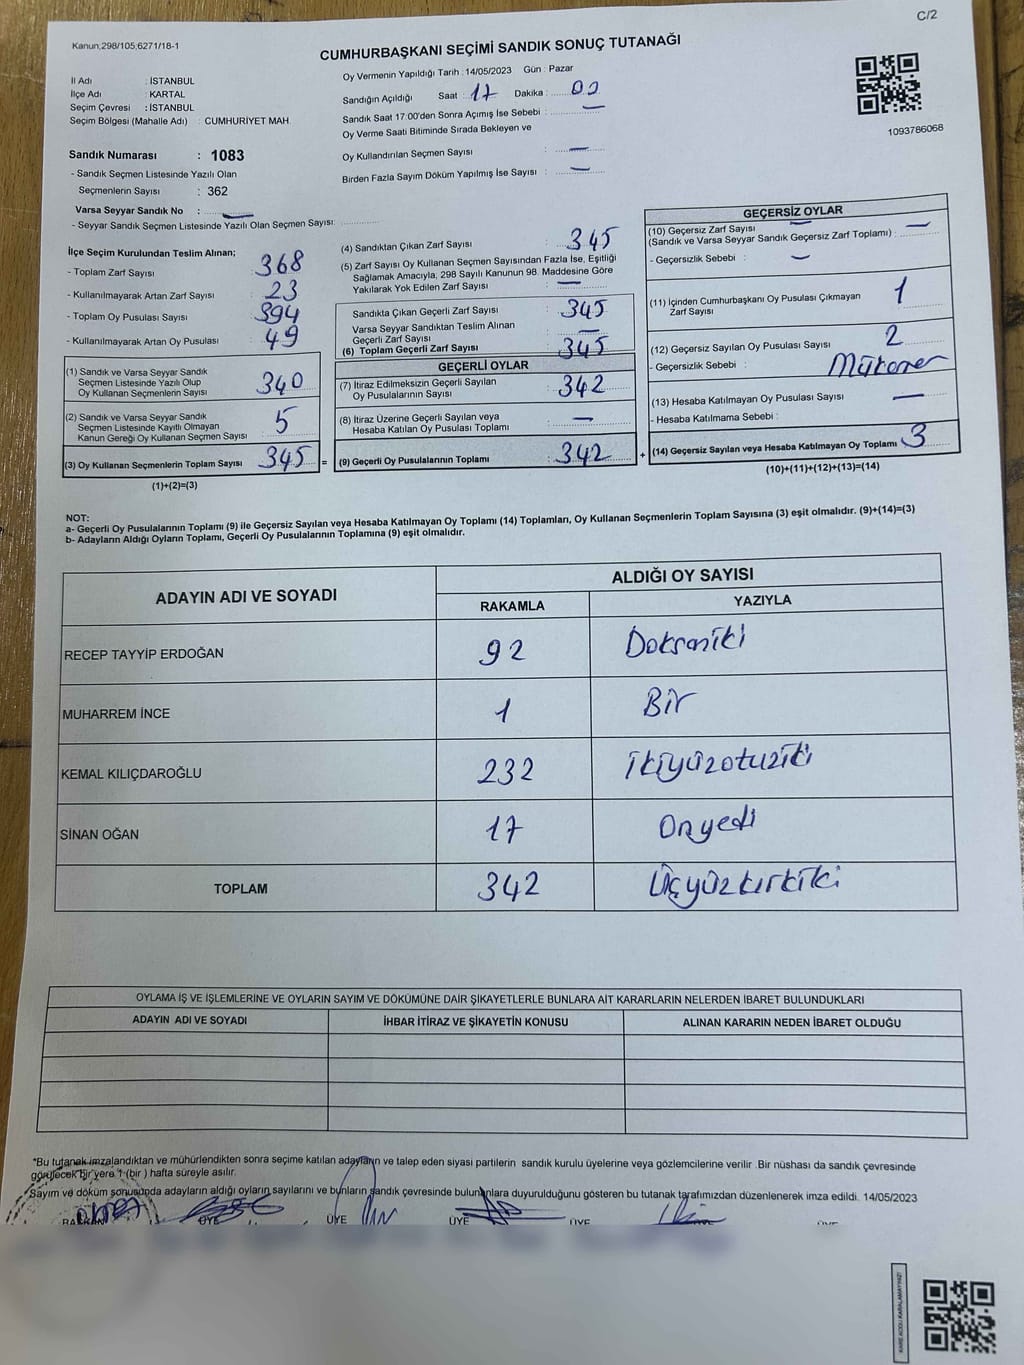 C/2
Kanun;298/105;6271/18-1
CUMHURBAŞKANI SEÇİMİ SANDIK SONUÇ TUTANAĞI
İl Adı : İSTANBUL
İlçe Adı : KARTAL
Seçim Çevresi : İSTANBUL
Seçim Bölgesi (Mahalle Adı) : CUMHURİYET MAH.
Sandık Numarası : 1083
- Sandık Seçmen Listesinde Yazılı Olan
Seçmenlerin Sayısı : 362
Varsa Seyyar Sandık No : —
- Seyyar Sandık Seçmen Listesinde Yazılı Olan Seçmen Sayısı:
Oy Vermenin Yapıldığı Tarih : 14/05/2023 Gün : Pazar
Sandığın Açıldığı Saat : 17 Dakika : 00
Sandık Saat 17:00'den Sonra Açımış İse Sebebi : —
Oy Verme Saati Bitiminde Sırada Bekleyen ve
Oy Kullandırılan Seçmen Sayısı : —
Birden Fazla Sayım Döküm Yapılmış İse Sayısı : —
1093786068
İlçe Seçim Kurulundan Teslim Alınan;
- Toplam Zarf Sayısı : 368
- Kullanılmayarak Artan Zarf Sayısı : 23
- Toplam Oy Pusulası Sayısı : 394
- Kullanılmayarak Artan Oy Pusulası : 49
(1) Sandık ve Varsa Seyyar Sandık
Seçmen Listesinde Yazılı Olup
Oy Kullanan Seçmenlerin Sayısı : 340
(2) Sandık ve Varsa Seyyar Sandık
Seçmen Listesinde Kayıtlı Olmayan
Kanun Gereği Oy Kullanan Seçmen Sayısı : 5
(3) Oy Kullanan Seçmenlerin Toplam Sayısı : 345 =
(1)+(2)=(3)
(4) Sandıktan Çıkan Zarf Sayısı : 345
(5) Zarf Sayısı Oy Kullanan Seçmen Sayısından Fazla İse, Eşitliği
Sağlamak Amacıyla, 298 Sayılı Kanunun 98. Maddesine Göre
Yakılarak Yok Edilen Zarf Sayısı : —
Sandıkta Çıkan Geçerli Zarf Sayısı : 345
Varsa Seyyar Sandıktan Teslim Alınan
Geçerli Zarf Sayısı : —
(6) Toplam Geçerli Zarf Sayısı : 345
GEÇERLİ OYLAR
(7) İtiraz Edilmeksizin Geçerli Sayılan
Oy Pusulalarının Sayısı : 342
(8) İtiraz Üzerine Geçerli Sayılan veya
Hesaba Katılan Oy Pusulası Toplamı : —
(9) Geçerli Oy Pusulalarının Toplamı : 342 +
GEÇERSİZ OYLAR
(10) Geçersiz Zarf Sayısı —
(Sandık ve Varsa Seyyar Sandık Geçersiz Zarf Toplamı) : —
- Geçersizlik Sebebi : —
(11) İçinden Cumhurbaşkanı Oy Pusulası Çıkmayan
Zarf Sayısı : 1
(12) Geçersiz Sayılan Oy Pusulası Sayısı : 2
- Geçersizlik Sebebi :
(13) Hesaba Katılmayan Oy Pusulası Sayısı : —
- Hesaba Katılmama Sebebi :
(14) Geçersiz Sayılan veya Hesaba Katılmayan Oy Toplamı : 3
(10)+(11)+(12)+(13)=(14)
NOT:
a- Geçerli Oy Pusulalarının Toplamı (9) ile Geçersiz Sayılan veya Hesaba Katılmayan Oy Toplamı (14) Toplamları, Oy Kullanan Seçmenlerin Toplam Sayısına (3) eşit olmalıdır. (9)+(14)=(3)
b- Adayların Aldığı Oyların Toplamı, Geçerli Oy Pusulalarının Toplamına (9) eşit olmalıdır.
ADAYIN ADI VE SOYADI ALDIĞI OY SAYISI
RAKAMLA YAZIYLA
RECEP TAYYİP ERDOĞAN 92 Doksaniki
MUHARREM İNCE 1 Bir
KEMAL KILIÇDAROĞLU 232 İkiyüzotuziki
SİNAN OĞAN 17 Onyedi
TOPLAM 342 Üçyüzkırkiki
OYLAMA İŞ VE İŞLEMLERİNE VE OYLARIN SAYIM VE DÖKÜMÜNE DAİR ŞİKAYETLERLE BUNLARA AİT KARARLARIN NELERDEN İBARET BULUNDUKLARI
ADAYIN ADI VE SOYADI İHBAR İTİRAZ VE ŞİKAYETİN KONUSU ALINAN KARARIN NEDEN İBARET OLDUĞU
*Bu tutanak imzalandıktan ve mühürlendikten sonra seçime katılan adayların ve talep eden siyasi partilerin sandık kurulu üyelerine veya gözlemcilerine verilir .Bir nüshası da sandık çevresinde
görülecek bir yere 1 (bir ) hafta süreyle asılır.
Sayım ve döküm sonusunda adayların aldığı oyların sayılarını ve bunların sandık çevresinde bulunanlara duyurulduğunu gösteren bu tutanak tarafımızdan düzenlenerek imza edildi. 14/05/2023
BAŞKAN ÜYE ÜYE ÜYE ÜYE ÜYE
KARE KODU KARALAMAYINIZ!